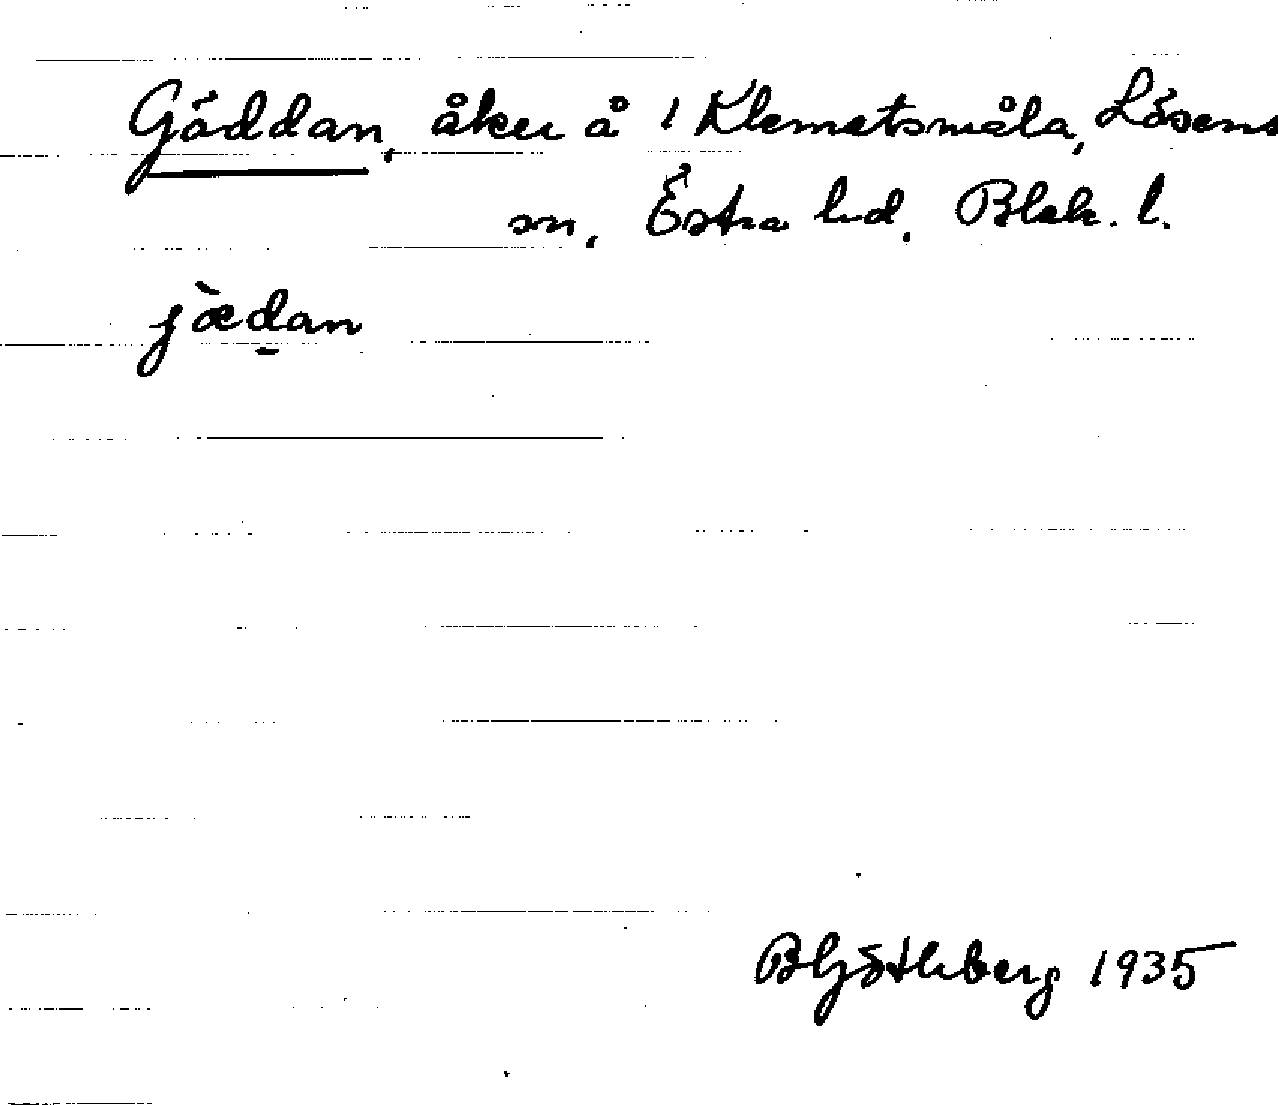 Gäddan, åker å 1 Klemetsmåla, Lösens
sn, Östra hd. Blek. l.
jæ̀d̲an
BGöthberg 1935